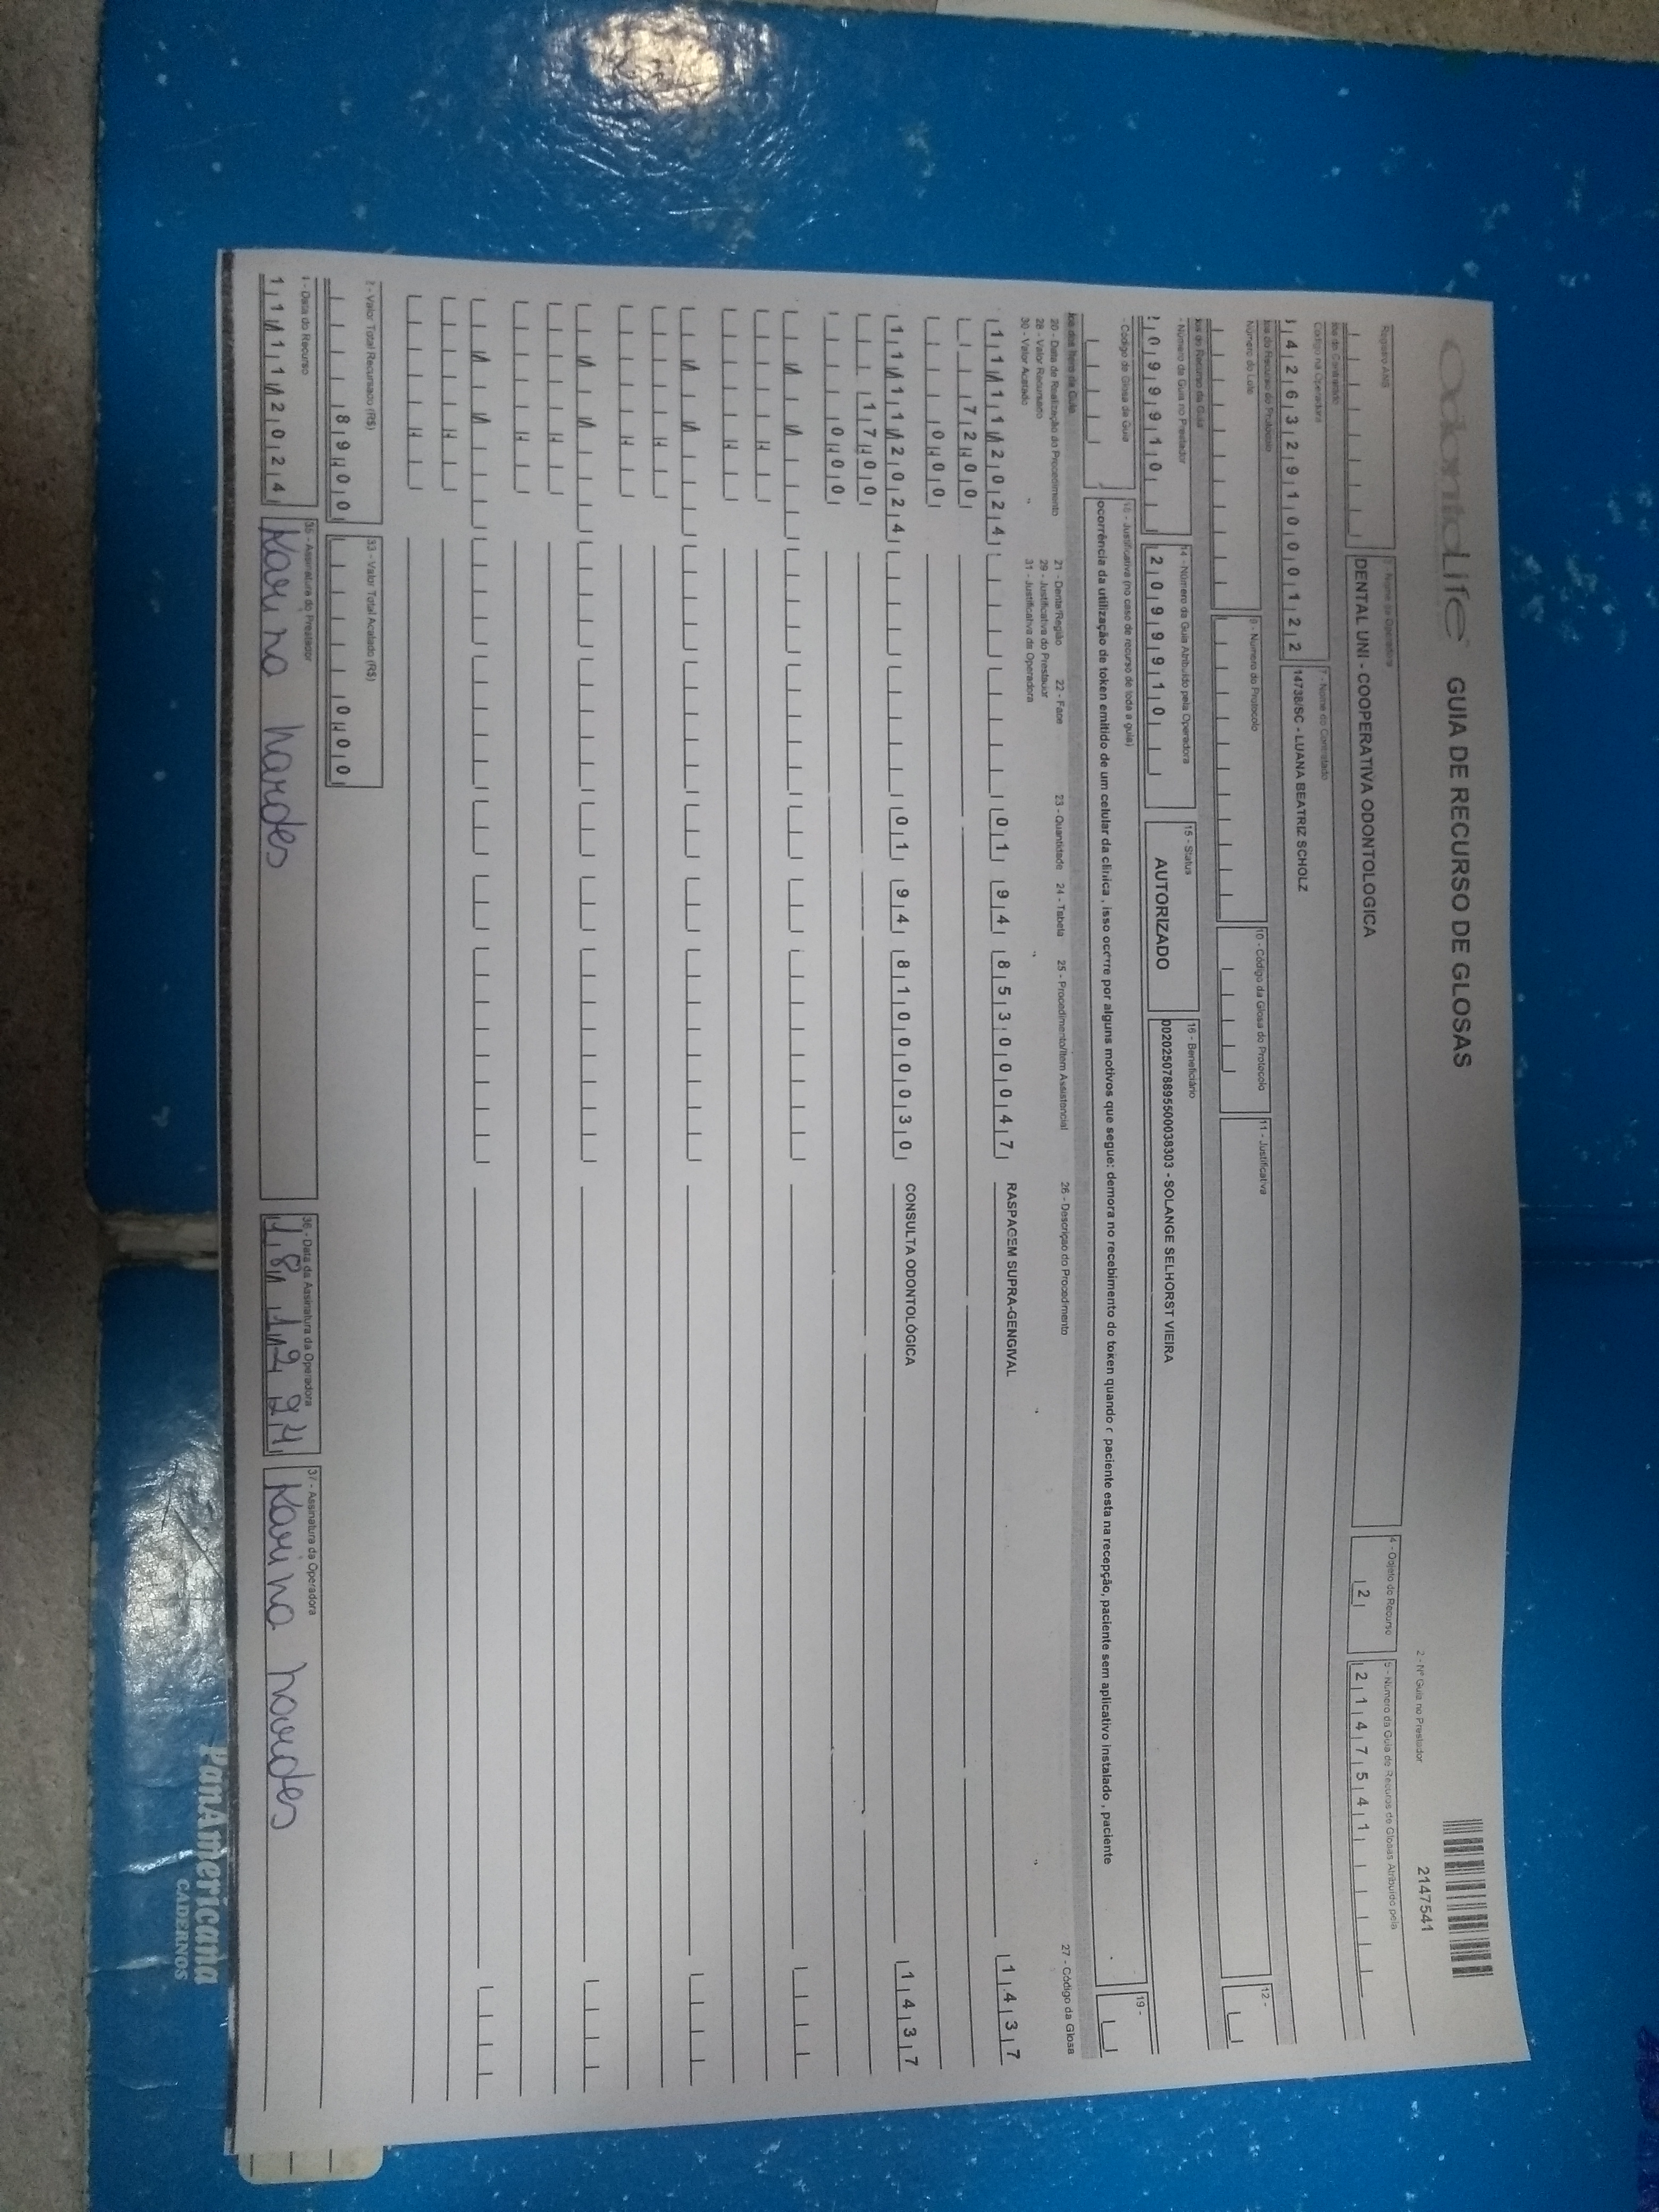 OdontoLife GUIA DE RECURSO DE GLOSAS
2 - Nº Guia no Prestador 2147541
Registro ANS
3 - Nome da Operadora
DENTAL UNI - COOPERATIVA ODONTOLOGICA
4 - Objeto do Recurso
2
5 - Número da Guia de Recurso de Glosas Atribuído pela
2147541
Código na Operadora
4263291000122
7 - Nome do Contratado
14738/SC - LUANA BEATRIZ SCHOLZ
Número do Lote
9 - Número do Protocolo
10 - Código da Glosa do Protocolo
11 - Justificativa
12 -
Número da Guia no Prestador
0999910
14 - Número da Guia Atribuído pela Operadora
20999910
15 - Status
AUTORIZADO
16 - Beneficiário
00202507889550003​8303 - SOLANGE SELHORST VIEIRA
Código de Glosa da Guia
18 - Justificativa (no caso de recurso de toda a guia)
ocorrência da utilização de token emitido de um celular da clínica , isso ocorre por alguns motivos que segue: demora no recebimento do token quando o paciente esta na recepção, paciente sem aplicativo instalado , paciente
19 -
20 - Data de Realização do Procedimento 21 - Dente/Região 22 - Face 23 - Quantidade 24 - Tabela 25 - Procedimento/Item Assistencial 26 - Descrição do Procedimento 27 - Código da Glosa
28 - Valor Recursado 29 - Justificativa do Prestador
30 - Valor Acatado 31 - Justificativa da Operadora
11/11/2024 01 94 85300047 RASPAGEM SUPRA-GENGIVAL 1437
72,00
0,00
11/11/2024 01 94 81000030 CONSULTA ODONTOLÓGICA 1437
17,00
0,00
Valor Total Recursado (R$)
89,00
33 - Valor Total Acatado (R$)
0,00
Data do Recurso
11/11/2024
35 - Assinatura do Prestador
36 - Data da Assinatura da Operadora
18 12 24
37 - Assinatura da Operadora
PanAmericana
CADERNOS